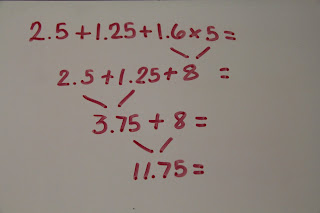 2.5+1.25+1.6×5=
2.5+1.25+8 =
3.75 + 8 =
11.75=